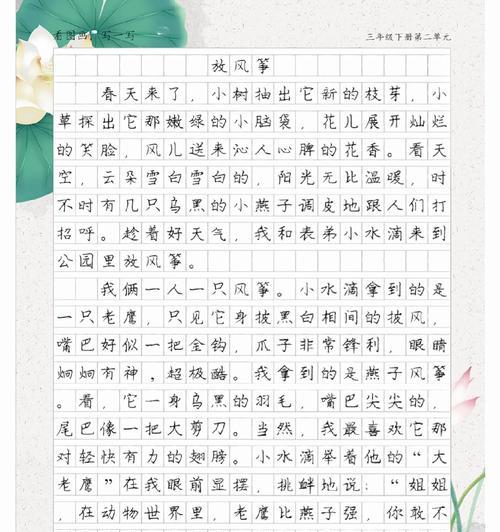 看图画，写一写
三年级下册第二单元
放风筝
春天来了，小树抽出它新的枝芽，小
草探出它那嫩绿的小脑袋，花儿展开灿烂
的笑脸，风儿送来沁人心脾的花香。看天
空，云朵雪白雪白的，阳光无比温暖，时
不时有几只乌黑的小燕子调皮地跟人们打
招呼。趁着好天气，我和表弟小水滴来到
公园里放风筝。
我俩一人一只风筝。小水滴拿到的是
一只老鹰，只见它身披黑白相间的披风，
嘴巴好似一把金钩，爪子非常锋利，眼睛
炯炯有神，超极酷。我拿到的是燕子风筝
。看，它一身乌黑的羽毛，嘴巴尖尖的，
尾巴像一把大剪刀。当然，我最喜欢它那
对轻快有力的翅膀。小水滴举着他的“大
老鹰”在我眼前显摆，挑衅地说：“姐姐
，在动物世界里，老鹰比燕子强，你敢不